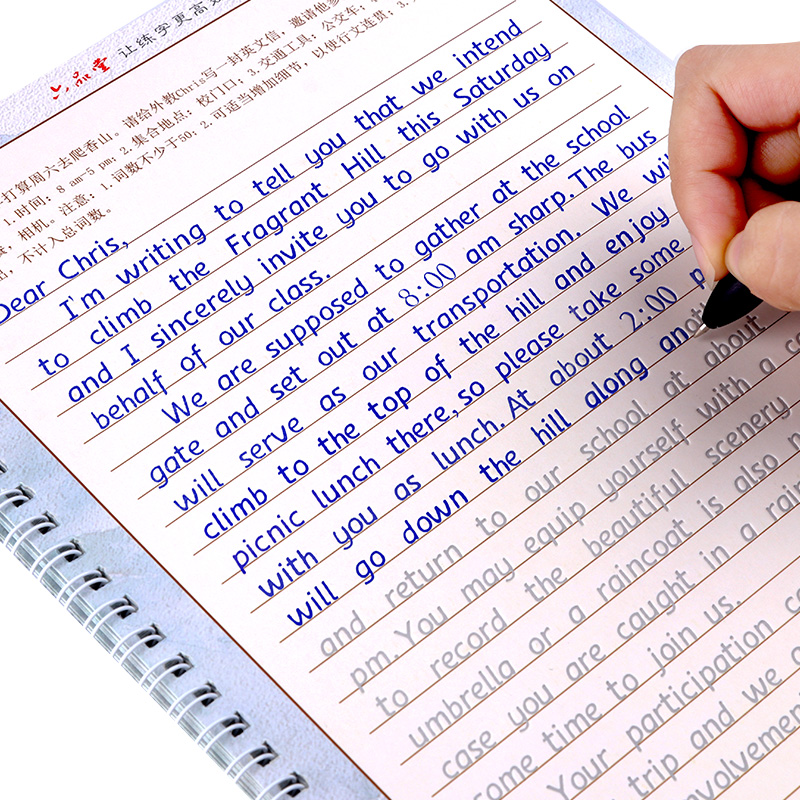 六品堂 让练字更高效
打算周六去爬香山。请给外教Chris写一封英文信，邀请他参
1.时间：8 am-5 pm；2.集合地点：校门口；3.交通工具：公交车；
相机。注意：1.词数不少于50；2.可适当增加细节，以使行文连贯；3.
不计入总词数。
Dear Chris,
I'm writing to tell you that we intend
to climb the Fragrant Hill this Saturday
and I sincerely invite you to go with us on
behalf of our class.
We are supposed to gather at the school
gate and set out at 8:00 am sharp. The bus
will serve as our transportation. We will
climb to the top of the hill and enjoy
picnic lunch there, so please take some
with you as lunch. At about 2:00 p
will go down the hill along another
and return to our school at about
pm. You may equip yourself with a
to record the beautiful scenery
umbrella or a raincoat is also
case you are caught in a rain
some time to join us.
Your participation
trip and we
involvement